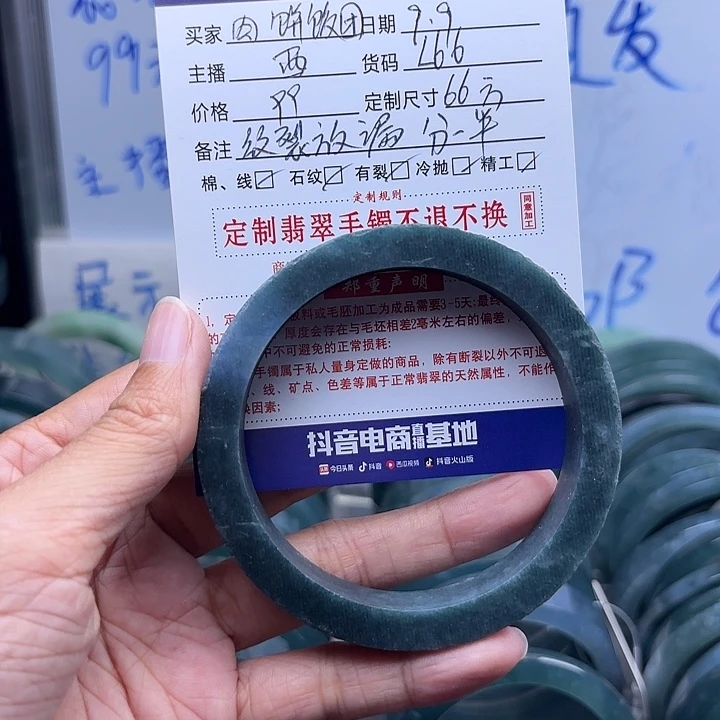 买家 肉饼饭团 日期 9.9
主播 西 货码 L66
价格 99 定制尺寸 66方
备注 纹裂放漏 分一半
棉、线 石纹 有裂 冷抛 精工
定制规则
定制翡翠手镯不退不换
同意加工
郑重声明
料或毛胚加工为成品需要3-5天;最终
厚度会存在与毛坯相差2毫米左右的偏差,
中不可避免的正常损耗;
手镯属于私人量身定做的商品,除有断裂以外不可退
、线、矿点、色差等属于正常翡翠的天然属性,不能作
因素;
抖音电商直播基地
今日头条 抖音 西瓜视频 抖音火山版
99
主播
展示
发